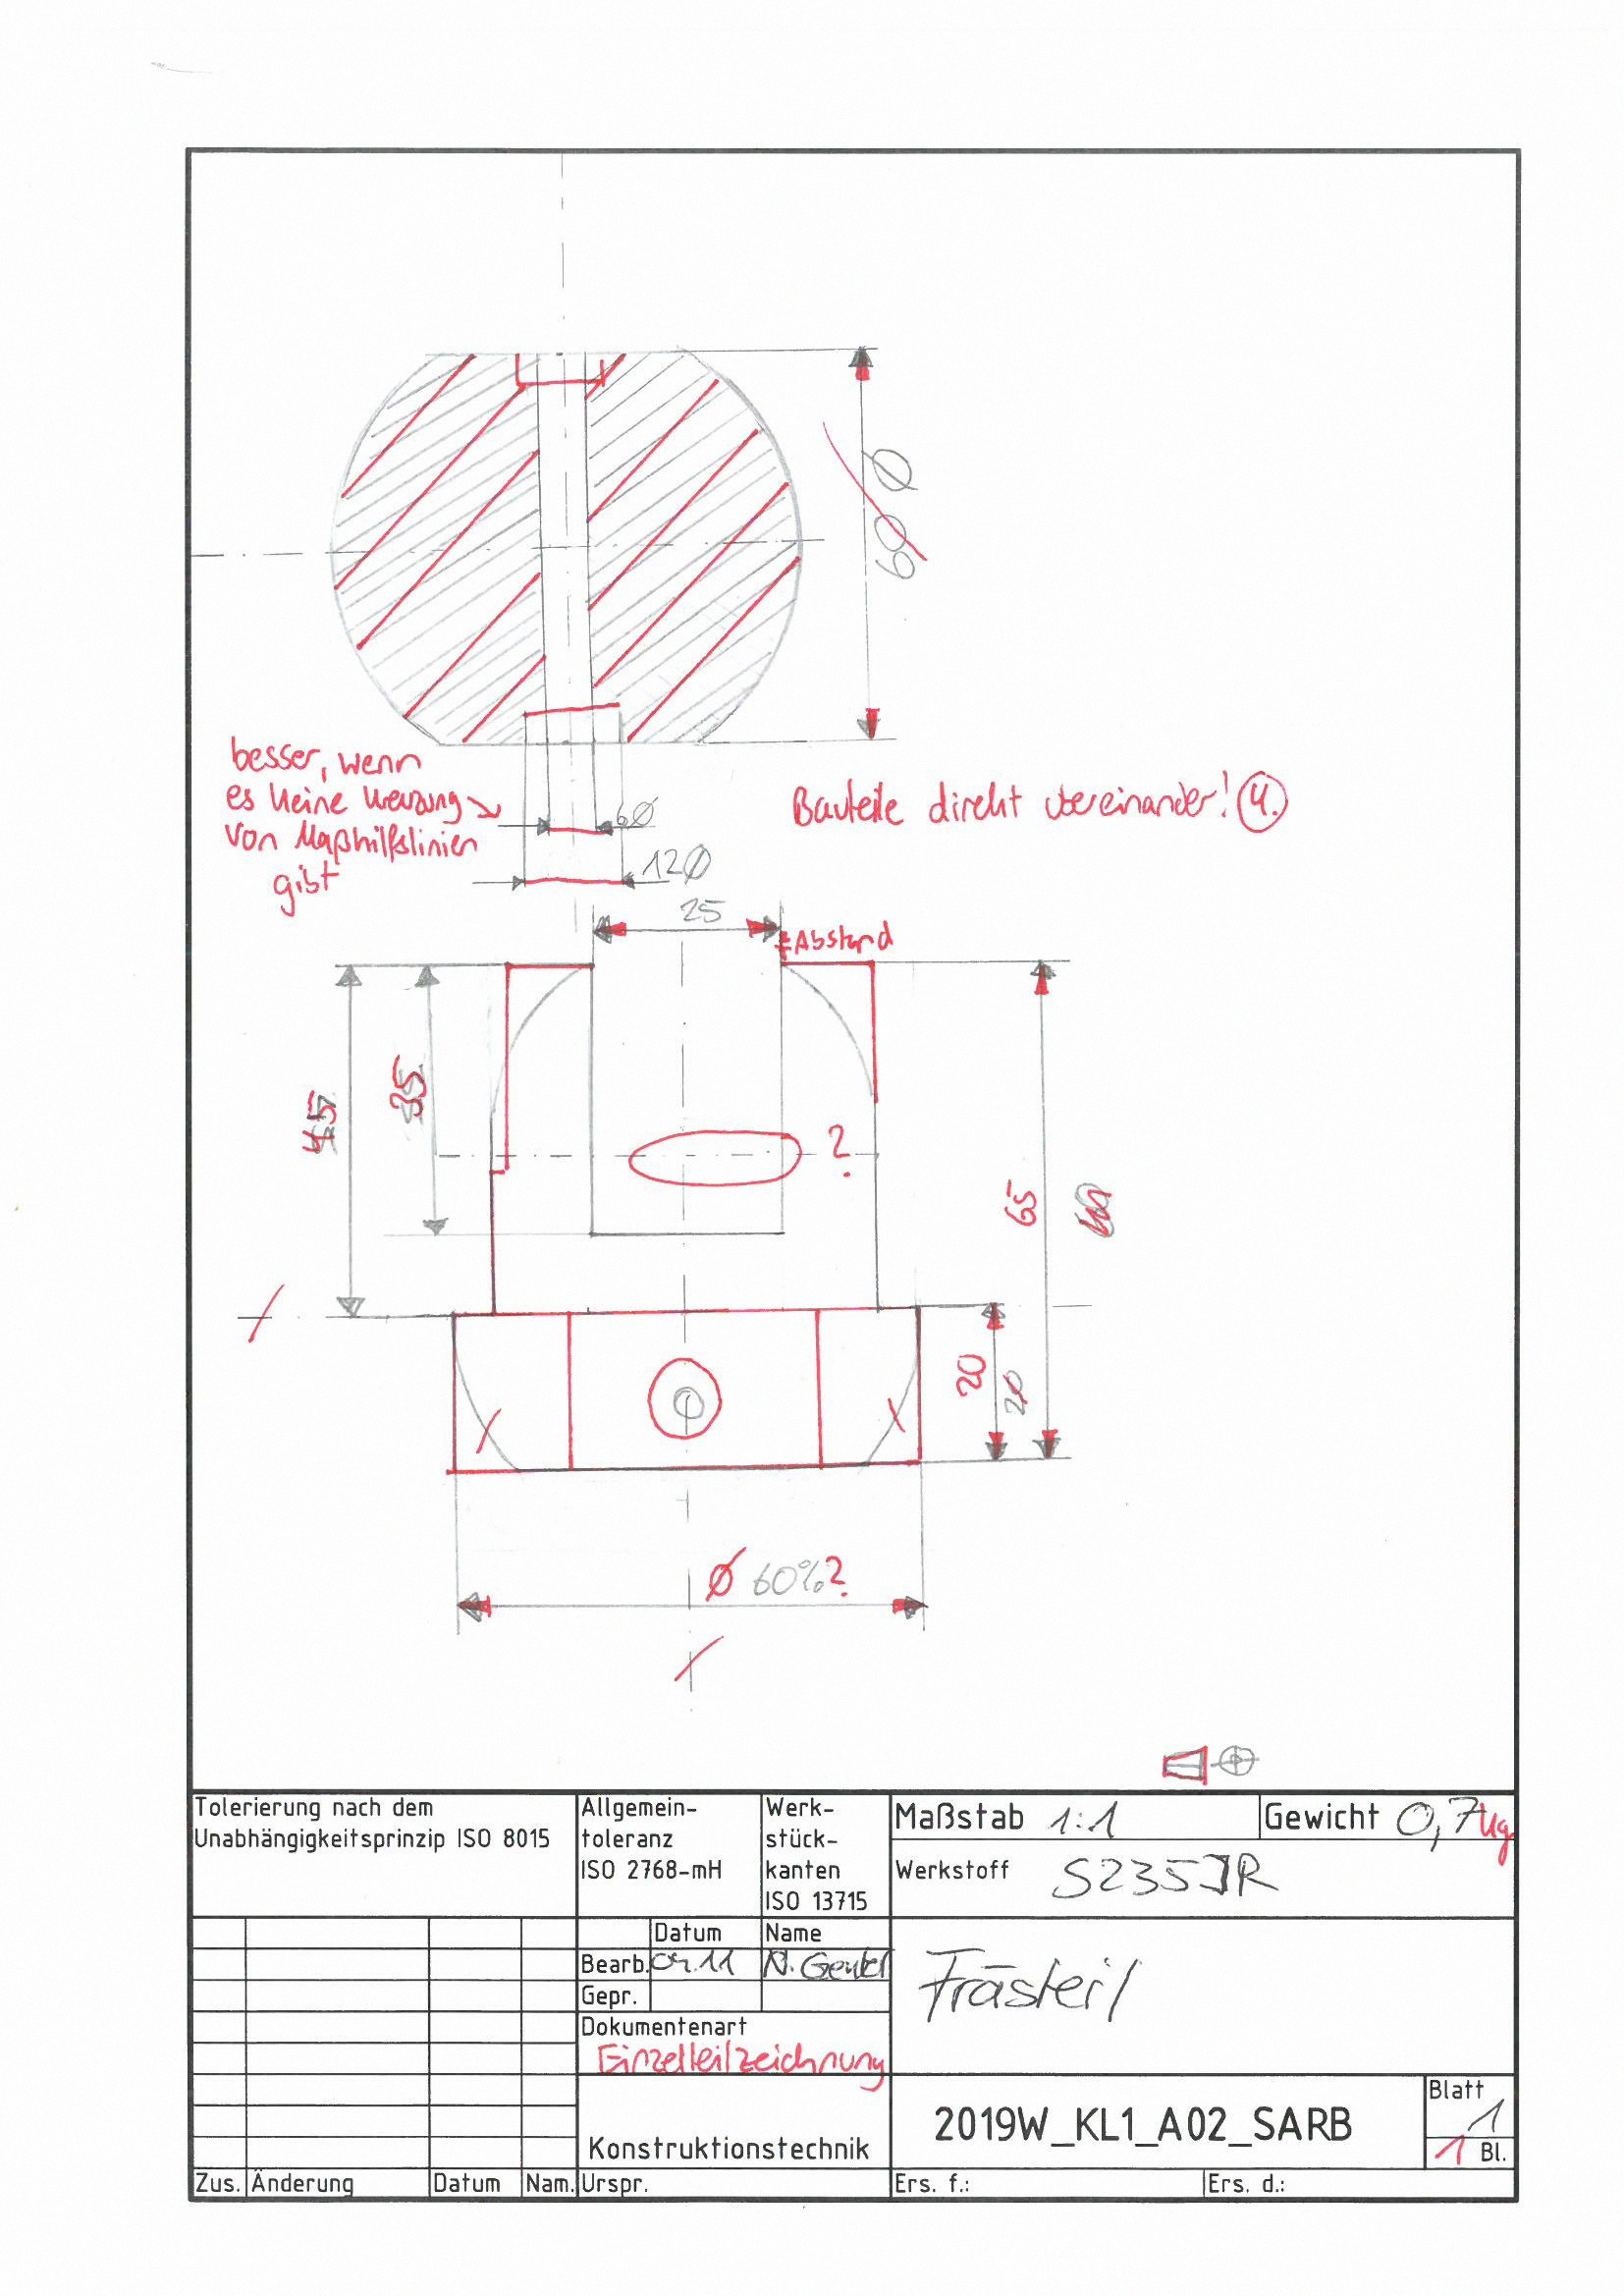 60 Ø
besser, wenn
es keine Kreuzung
von Maßhilfslinien
gibt
Bauteile direkt übereinander! 4.
6Ø
12Ø
25
Abstand
45
35
?
65
60
20
20
Ø 60%?
Tolerierung nach dem
Unabhängigkeitsprinzip ISO 8015
Allgemein-
toleranz
ISO 2768-mH
Werk-
stück-
kanten
ISO 13715
Maßstab 1:1
Gewicht 0,7kg
Werkstoff S235JR
Datum Name
Bearb. 07.11
Gepr.
Dokumentenart
Einzelteilzeichnung
Frästeil
Konstruktionstechnik
2019W_KL1_A02_SARB
Blatt
1
1 Bl.
Zus. Änderung Datum Nam. Urspr. Ers. f.: Ers. d.: